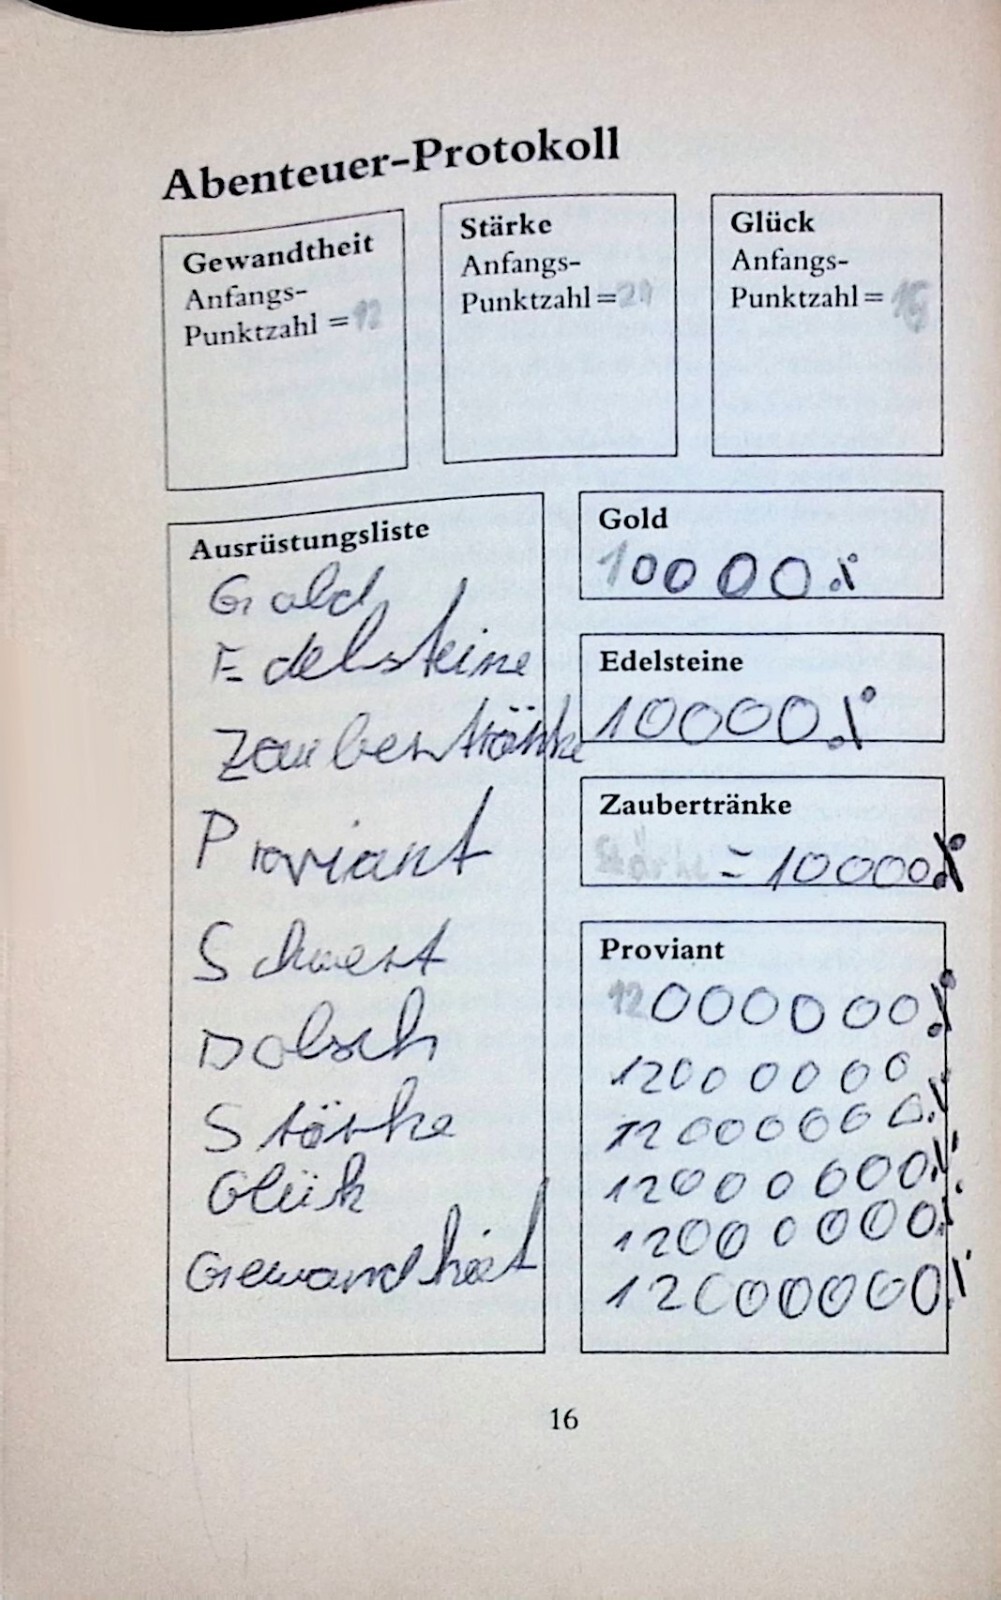 Abenteuer-Protokoll
Gewandtheit
Anfangs-
Punktzahl = 12
Stärke
Anfangs-
Punktzahl =
Glück
Anfangs-
Punktzahl =
Ausrüstungsliste
Gold
Edelsteine
Zaubertränke
Proviant
Schwert
Dolsch
Stärke
Glük
Gewandheit
Gold
10000%
Edelsteine
10000%
Zaubertränke
Stärke = 10000%
Proviant
12000000%
12000000
12000000%
12000000%
12000000%
12000000%
16